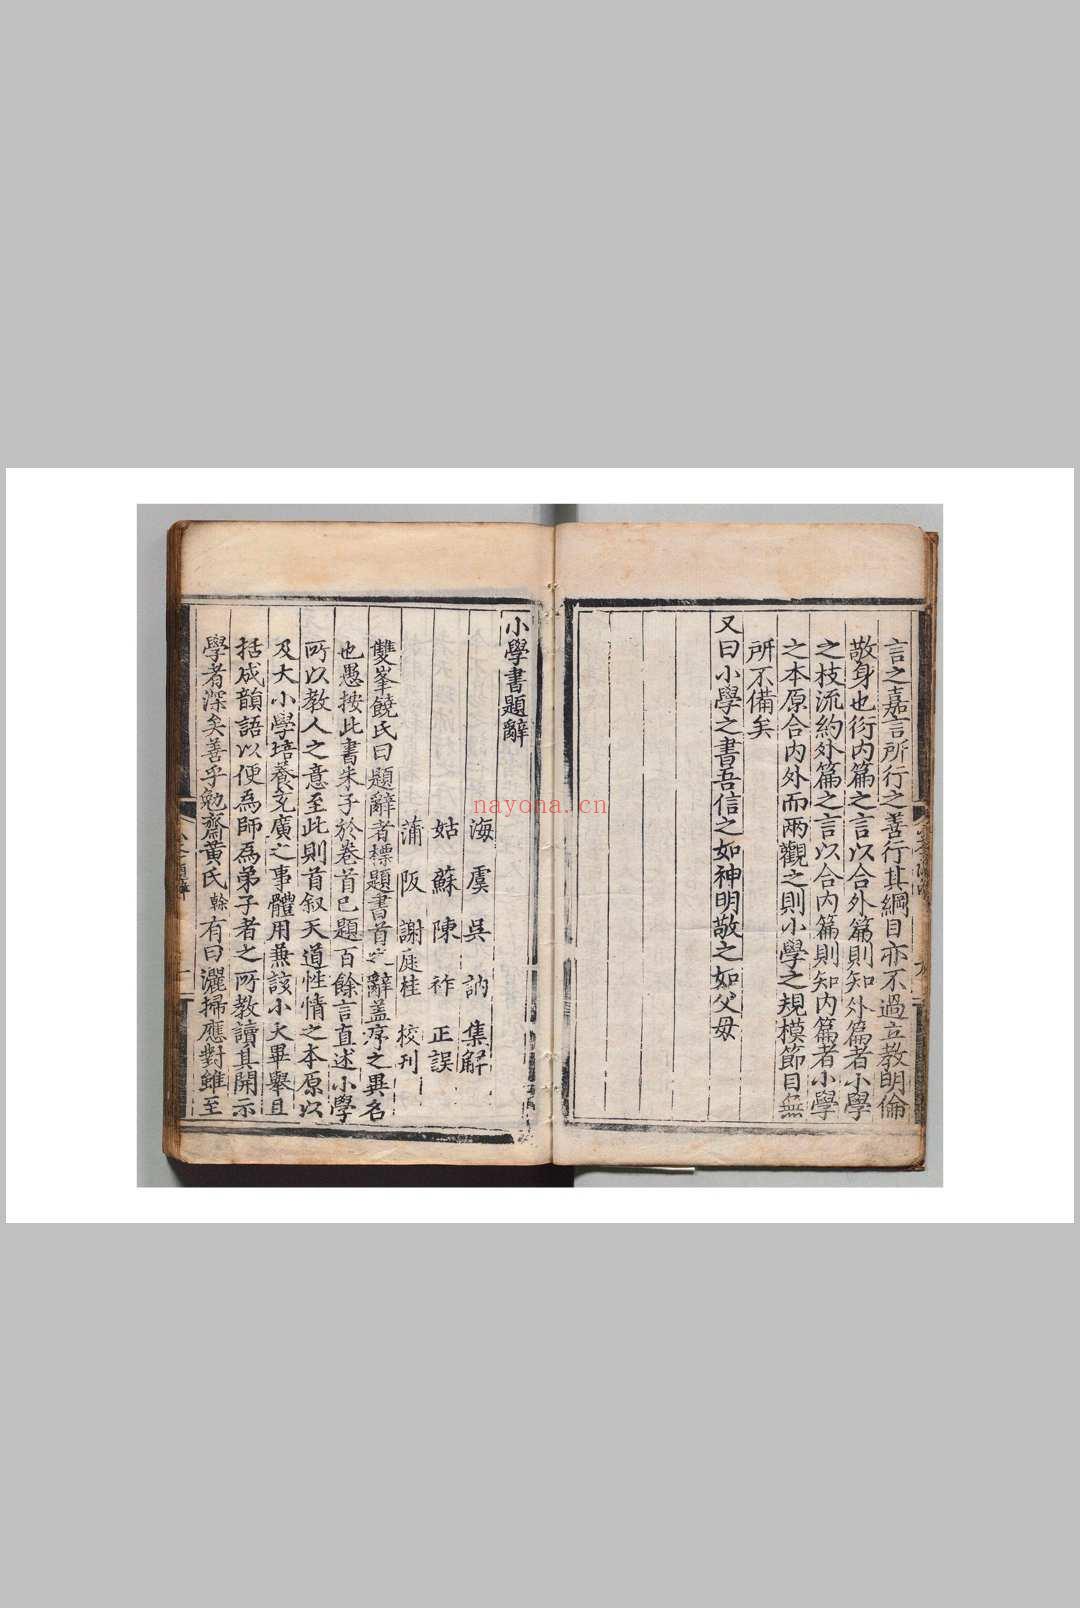 言之嘉言所行之善行其綱目亦不過立教明倫
敬身也衍内篇之言以合外篇則知外篇者小學
之枝流約外篇之言以合内篇則知内篇者小學
之本原合内外而兩觀之則小學之規模節目無
所不備矣
又曰小學之書吾信之如神明敬之如父母
小學書題辭
海虞吳訥集解
姑蘇陳祚正誤
蒲阪謝庭桂校刊
雙峯饒氏曰題辭者標題書首之辭盖序之異名
也愚按此書朱子於卷首已題百餘言直述小學
所以教人之意至此則首叙天道性情之本原以
及大小學培養充廣之事體用兼該小大畢舉且
括成韻語以便為師為弟子者之所教讀其開示
學者深矣善乎勉齋黄氏榦有曰灑掃應對雖至
nayona.cn